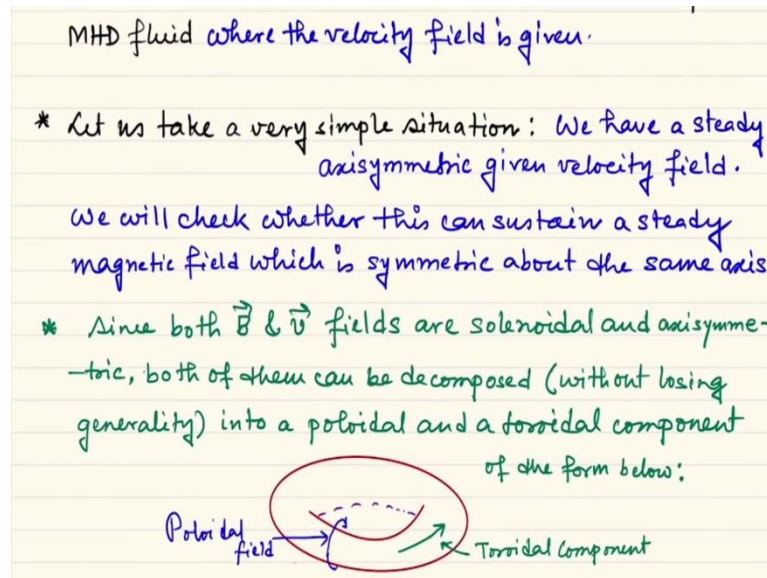 MHD fluid where the velocity field is given.
* Let us take a very simple situation: We have a steady
axisymmetric given velocity field.
We will check whether this can sustain a steady
magnetic field which is symmetric about the same axis
* Since both B⃗ & v⃗ fields are solenoidal and axisymme-
-tric, both of them can be decomposed (without losing
generality) into a poloidal and a toroidal component
of the form below:
Poloidal
field
Toroidal Component